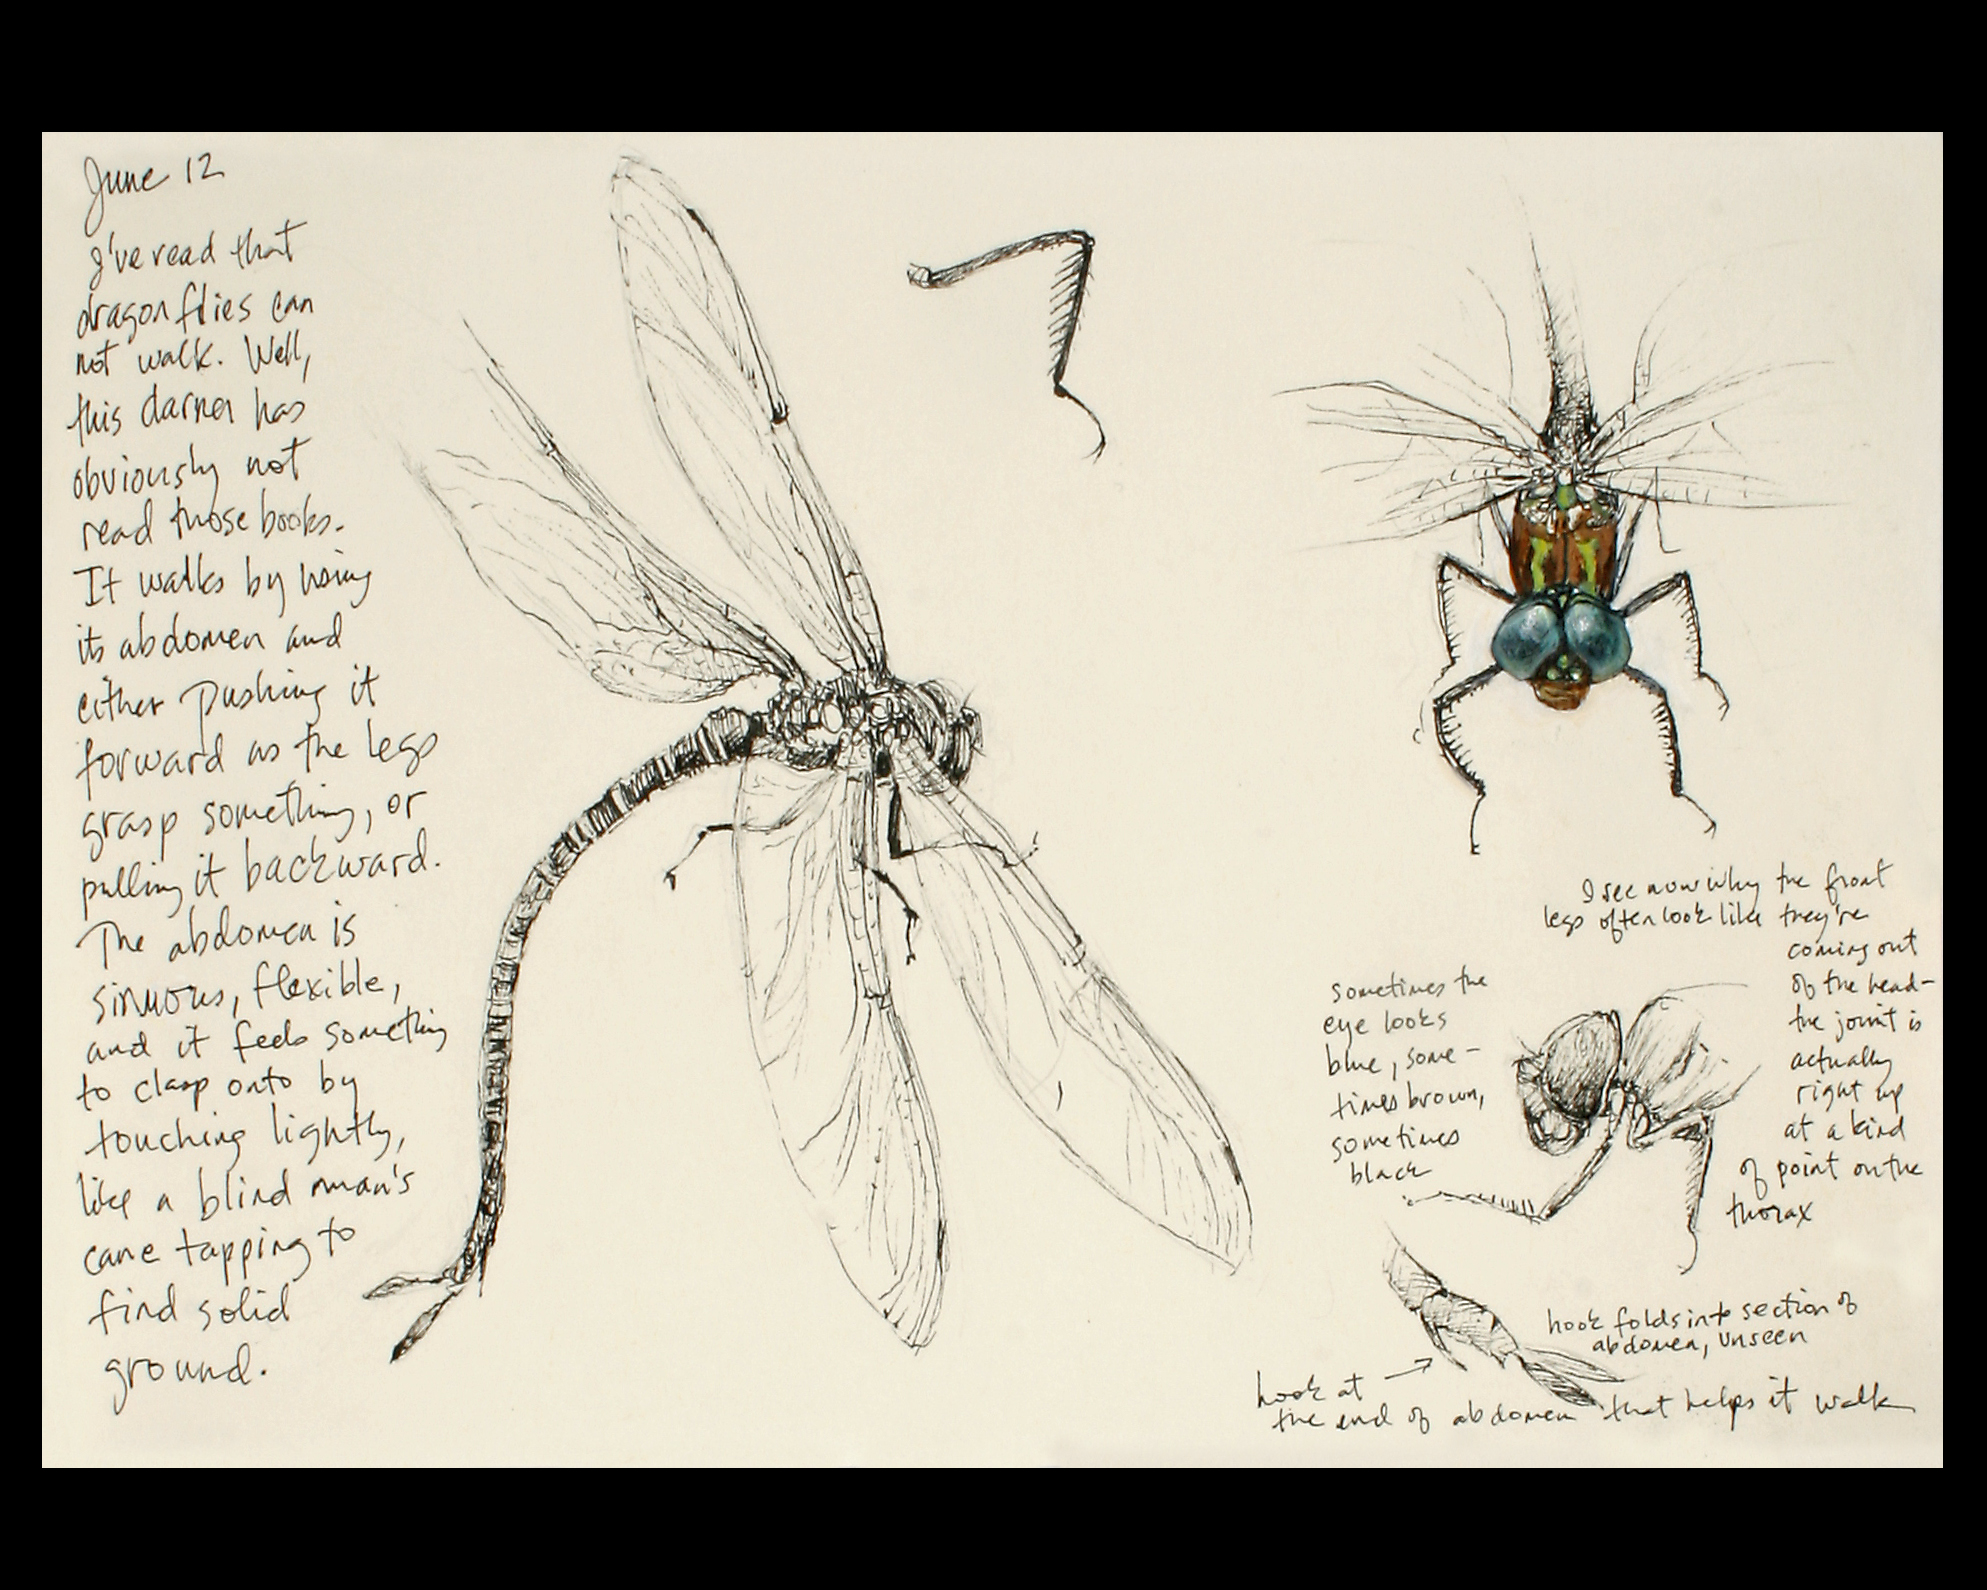 June 12
I've read that
dragonflies can
not walk. Well,
this darner has
obviously not
read those books.
It walks by using
its abdomen and
either pushing it
forward as the legs
grasp something, or
pulling it backward.
The abdomen is
sinuous, flexible,
and it feels something
to clasp onto by
touching lightly,
like a blind man's
cane tapping to
find solid
ground.
I see now why the front
legs often look like they're
coming out
of the head-
the joint is
actually
right up
at a kind
of point on the
thorax
sometimes the
eye looks
blue, some-
times brown,
sometimes
black
hook folds into section of
abdomen, unseen
hook at
the end of abdomen that helps it walk